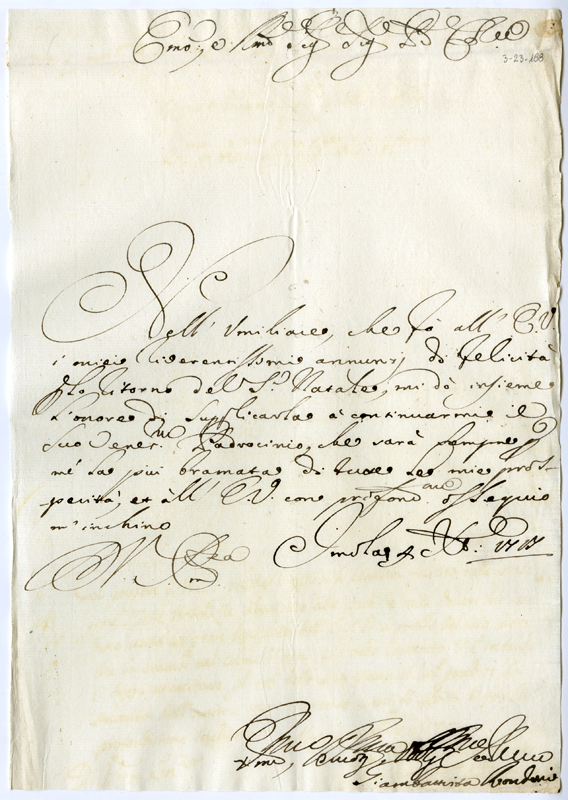 Emo: e Rmo Sig.r Sig.r P.ron Col.mo
3-23-168
Nell' umiliare, che fò all' E.V.
i miei riverentissimi annunzj di felicità
nel ritorno del S.o Natale, mi dò insieme
l'onore di supplicarla à continuarmi il
suo vener.mo Padrocinio, che sarà sempre p
mè la più bramata di tutte le mie pros-
perità, et all' E.V. con profond.mo ossequio
m' inchino
Imola
V. Em.za
Giambattista